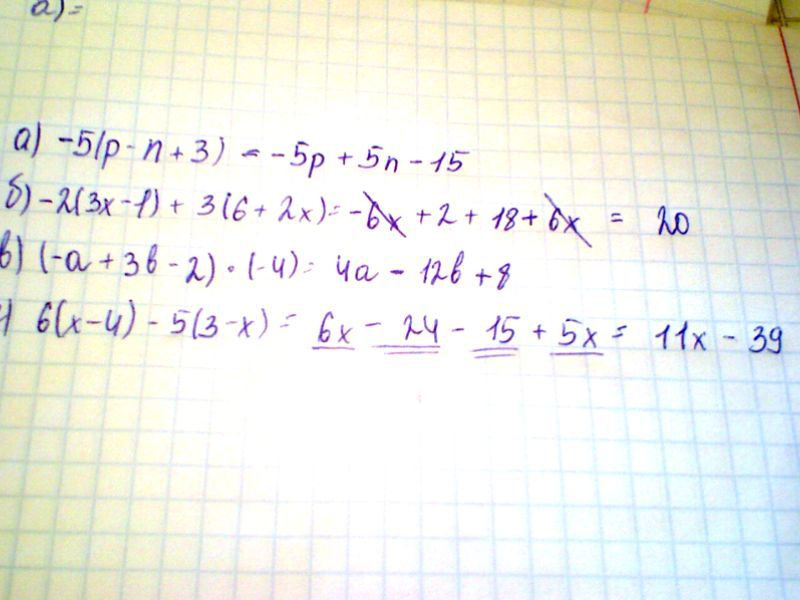 а) =
а) -5(p - n + 3) = -5p + 5n - 15
б) -2(3x - 1) + 3(6 + 2x) = -6x + 2 + 18 + 6x = 20
в) (-a + 3b - 2) · (-4) = 4a - 12b + 8
) 6(x - 4) - 5(3 - x) = 6x - 24 - 15 + 5x = 11x - 39